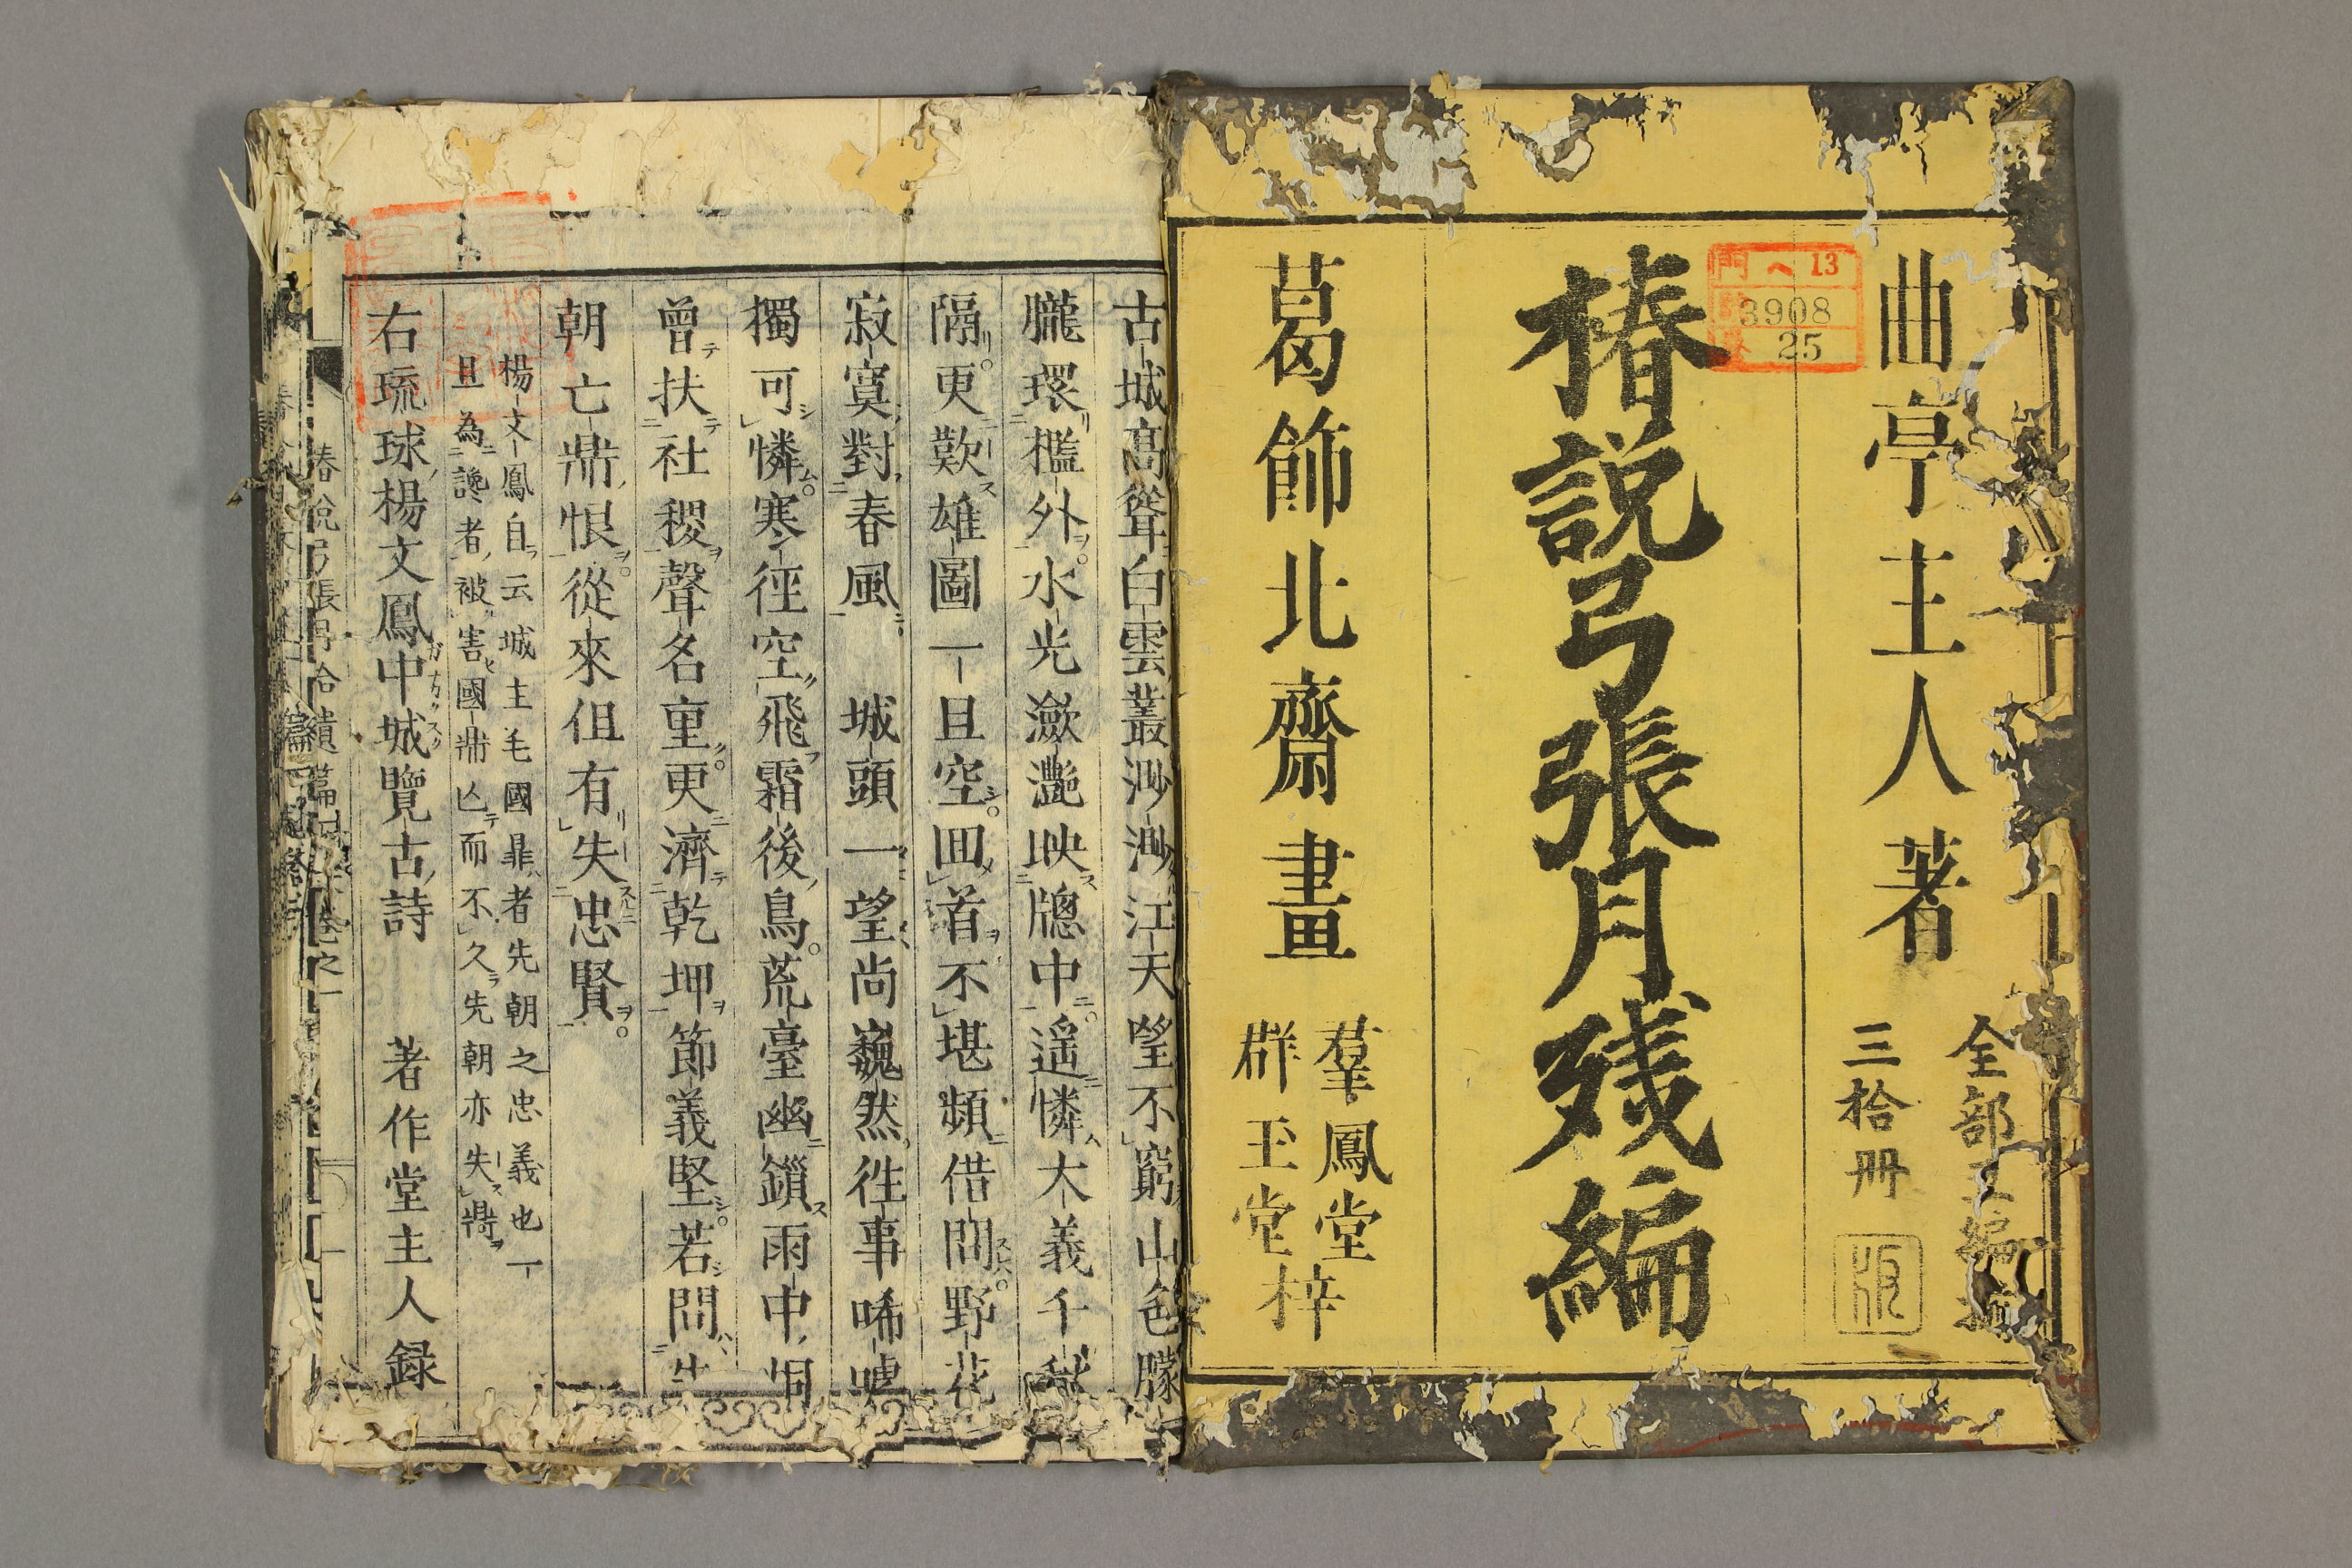 曲亭主人著
全部五編
三拾冊
門 へ13
號 3908
卷 25
椿説弓張月残編
葛飾北齋畫
羣鳳堂
群玉堂
梓
古城高聳白雲叢渺渺江天望不窮山色朦
朧環檻外水光瀲灔映牕中遥憐大義千秋
隔更歎雄圖一旦空回首不堪頻借問野花
寂寞對春風 城頭一望尚巍然往事唏嘘
獨可憐寒徑空飛霜後鳥荒臺幽鎖雨中烟
曾扶社稷聲名重更濟乾坤節義堅若問先
朝亡鼎恨從來但有失忠賢
楊文鳳自云城主毛國鼎者先朝之忠義也一
且為讒者被害國鼎亡而不久先朝亦失鼎
右琉球楊文鳳中城覽古詩 著作堂主人録
椿説弓張月拾遺篇 卷之一